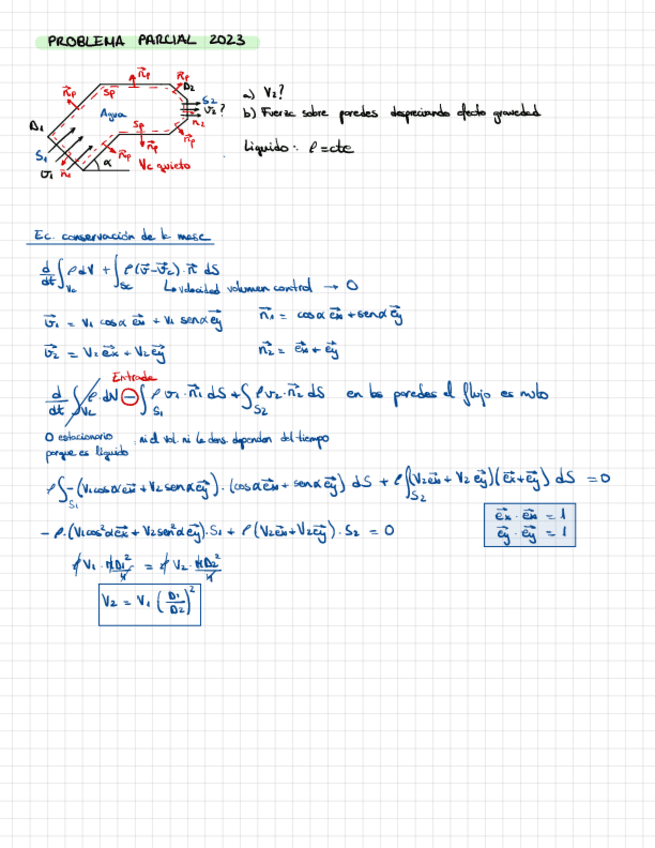 PROBLEMA PARCIAL 2023
n⃗p
n⃗p
Sp
n⃗p
D2
Agua
S2
v⃗2?
n⃗2
D1
Sp
n⃗p
S1
v⃗1
n⃗1
n⃗p
n⃗p
α
Vc quieto
a) V2?
b) Fuerza sobre paredes despreciando efecto gravedad
Liquido: ρ=cte
Ec. conservación de la masa
d/dt ∫Vc ρ dV + ∫Sc ρ(v⃗-v⃗c)·n⃗ dS
↳ velocidad volumen control → 0
v⃗1 = V1 cosα e⃗x + V1 senα e⃗y
n⃗1 = cosα e⃗x + senα e⃗y
v⃗2 = V2 e⃗x + V2 e⃗y
n⃗2 = e⃗x + e⃗y
Entrada
d/dt ∫Vc ρ dV ⊖ ∫S1 ρ v1·n⃗1 dS + ∫S2 ρ v2·n⃗2 dS en las paredes el flujo es nulo
0 estacionario : ni el vol. ni la dens. dependen del tiempo
porque es líquido
ρ ∫S1 -(V1 cosα e⃗x + V2 senα e⃗y)·(cosα e⃗x + senα e⃗y) dS + ρ ∫S2 (V2 e⃗x + V2 e⃗y)(e⃗x + e⃗y) dS = 0
- ρ·(V1 cos²α e⃗x + V2 sen²α e⃗y)·S1 + ρ(V2 e⃗x + V2 e⃗y)·S2 = 0
e⃗x · e⃗x = 1
e⃗y · e⃗y = 1
ρ V1 · πD1²/4 = ρ V2 · πD2²/4
V2 = V1 (D1/D2)²